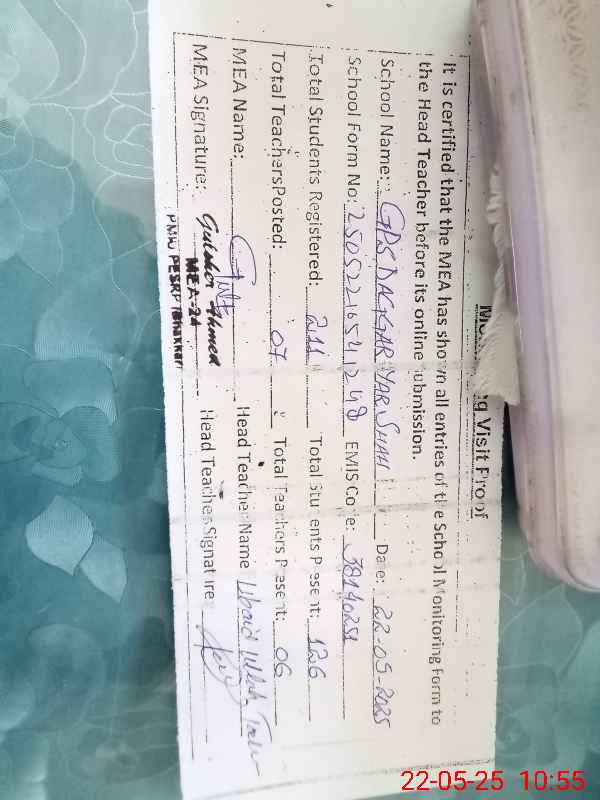 Monitoring Visit Proof
It is certified that the MEA has shown all entries of the School Monitoring Form to
the Head Teacher before its online submission.
School Name: GPS DAGGAR YAR SHAH Date: 22-05-2025
School Form No: 250522165411248 EMIS Code: 38140251
Total Students Registered: 211 Total Students Present: 126
Total Teachers Posted: 07 Total Teachers Present: 06
MEA Name: Head Teacher Name Ubaid Ullah
MEA Signature: Gulsher Ahmed Head Teacher Signature:
MEA-24
PMIU PESRP (Bhakkar)
22-05-25 10:55